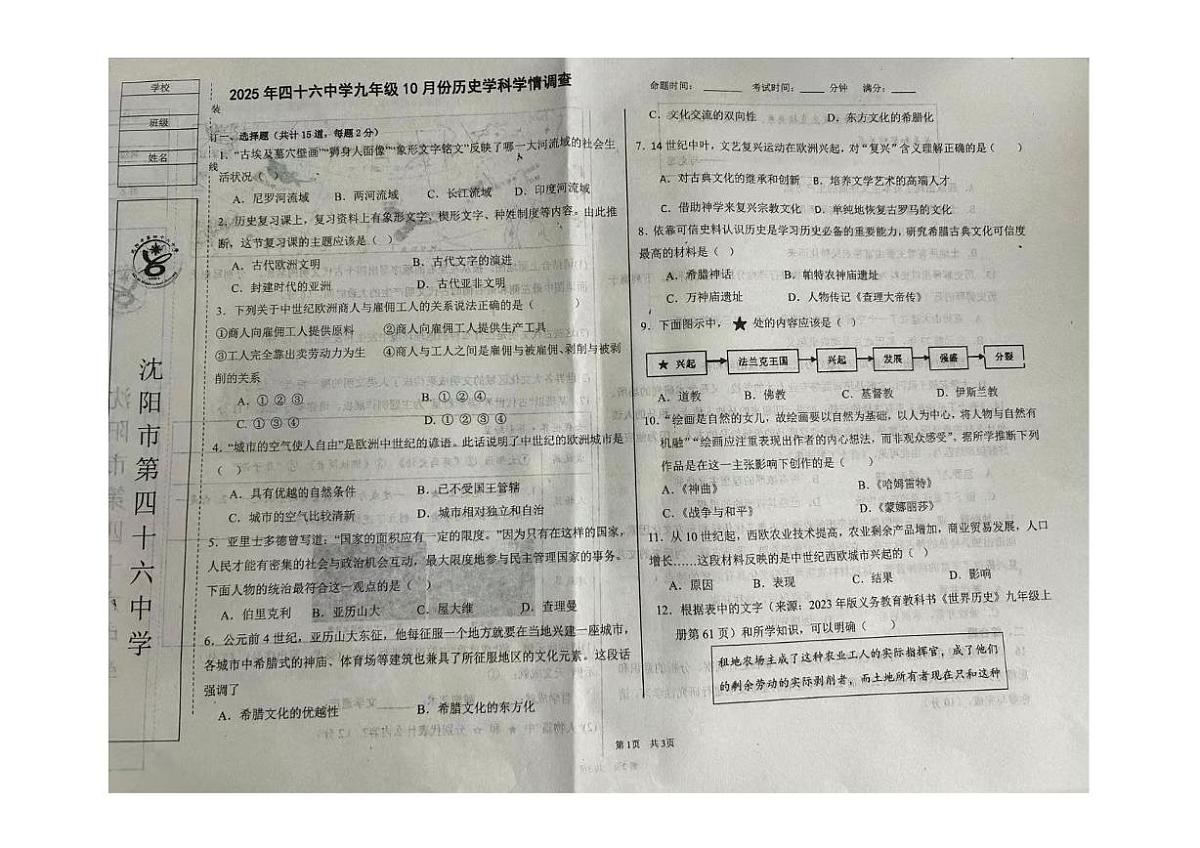 学校
班级
姓名
装
订
线
沈阳市第四十六中学
2025年四十六中学九年级10月份历史学科学情调查
一、选择题（共计15道，每题2分）
1. "古埃及墓穴壁画""狮身人面像""象形文字铭文"反映了哪一大河流域的社会生
活状况（ ）
A．尼罗河流域 B．两河流域 C．长江流域 D．印度河流域
2．历史复习课上，复习资料上有象形文字、楔形文字、种姓制度等内容。由此推
断，这节复习课的主题应该是（ ）
A．古代欧洲文明 B．古代文字的演进
C．封建时代的亚洲 D．古代亚非文明
3．下列关于中世纪欧洲商人与雇佣工人的关系说法正确的是（ ）
①商人向雇佣工人提供原料 ②商人向雇佣工人提供生产工具
③工人完全靠出卖劳动力为生 ④商人与工人之间是雇佣与被雇佣、剥削与被剥
削的关系
A．① ② ③ B．① ② ④
C．① ③ ④ D．① ② ③ ④
4．"城市的空气使人自由"是欧洲中世纪的谚语。此话说明了中世纪的欧洲城市是
（ ）
A．具有优越的自然条件 B．已不受国王管辖
C．城市的空气比较清新 D．城市相对独立和自治
5．亚里士多德曾写道："国家的面积应有一定的限度。"因为只有在这样的国家，
人民才能有密集的社会与政治机会互动，最大限度地参与民主管理国家的事务。
下面人物的统治最符合这一观点的是（ ）
A．伯里克利 B．亚历山大 C．屋大维 D．查理曼
6．公元前4世纪，亚历山大东征，他每征服一个地方就要在当地兴建一座城市，
各城市中希腊式的神庙、体育场等建筑也兼具了所征服地区的文化元素。这段话
强调了
A．希腊文化的优越性 B．希腊文化的东方化
命题时间：______ 考试时间：____ 分钟 满分：____
C．文化交流的双向性 D．东方文化的希腊化
7．14世纪中叶，文艺复兴运动在欧洲兴起，对"复兴"含义理解正确的是（ ）
A．对古典文化的继承和创新 B．培养文学艺术的高端人才
C．借助神学来复兴宗教文化 D．单纯地恢复古罗马的文化
8．依靠可信史料认识历史是学习历史必备的重要能力，研究希腊古典文化可信度
最高的材料是（ ）
A．希腊神话 B．帕特农神庙遗址
C．万神庙遗址 D．人物传记《查理大帝传》
9．下面图示中，★ 处的内容应该是（ ）
★ 兴起 → 法兰克王国 → 兴起 → 发展 → 强盛 → 分裂
A．道教 B．佛教 C．基督教 D．伊斯兰教
10．"绘画是自然的女儿，故绘画要以自然为基础，以人为中心，将人物与自然有
机融""绘画应注重表现出作者的内心想法，而非观众感受"。据所学推断下列
作品是在这一主张影响下创作的是（ ）
A．《神曲》 B．《哈姆雷特》
C．《战争与和平》 D．《蒙娜丽莎》
11．从10世纪起，西欧农业技术提高，农业剩余产品增加，商业贸易发展，人口
增长……这段材料反映的是中世纪西欧城市兴起的（ ）
A．原因 B．表现 C．结果 D．影响
12．根据表中的文字（来源：2023年版义务教育教科书《世界历史》九年级上
册第61页）和所学知识，可以明确（ ）
租地农场主成了这种农业工人的实际指挥官，成了他们
的剩余劳动的实际剥削者，而土地所有者现在只和这种
第1页 共3页